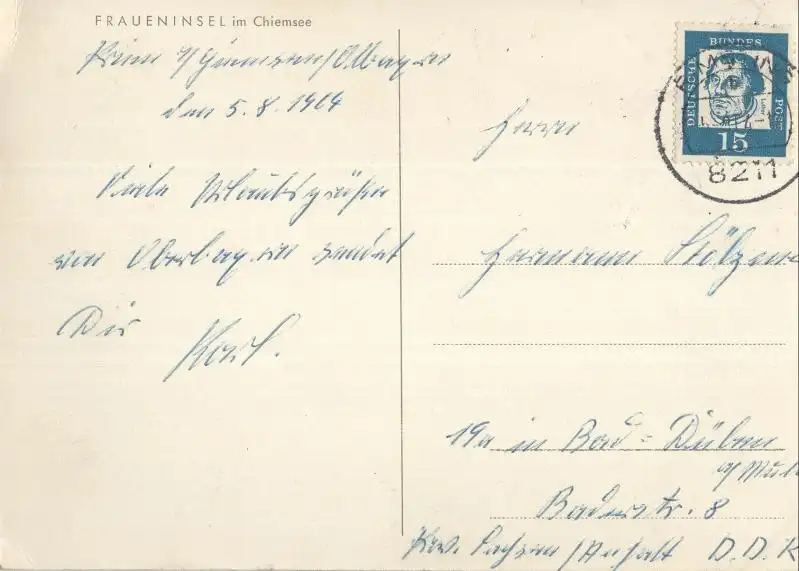 FRAUENINSEL im Chiemsee
Prien a/Chiemsee/Obbayern
den 5.8.1964
Viele Urlaubsgrüße
von Oberbayern sendet
Dir
Karl.
DEUTSCHE BUNDES POST
15
8211
Herrn
Hermann Stölzne
19a in Bad=Düben
a/Mul
Baderstr. 8
Sachsen/Anhalt D.D.R